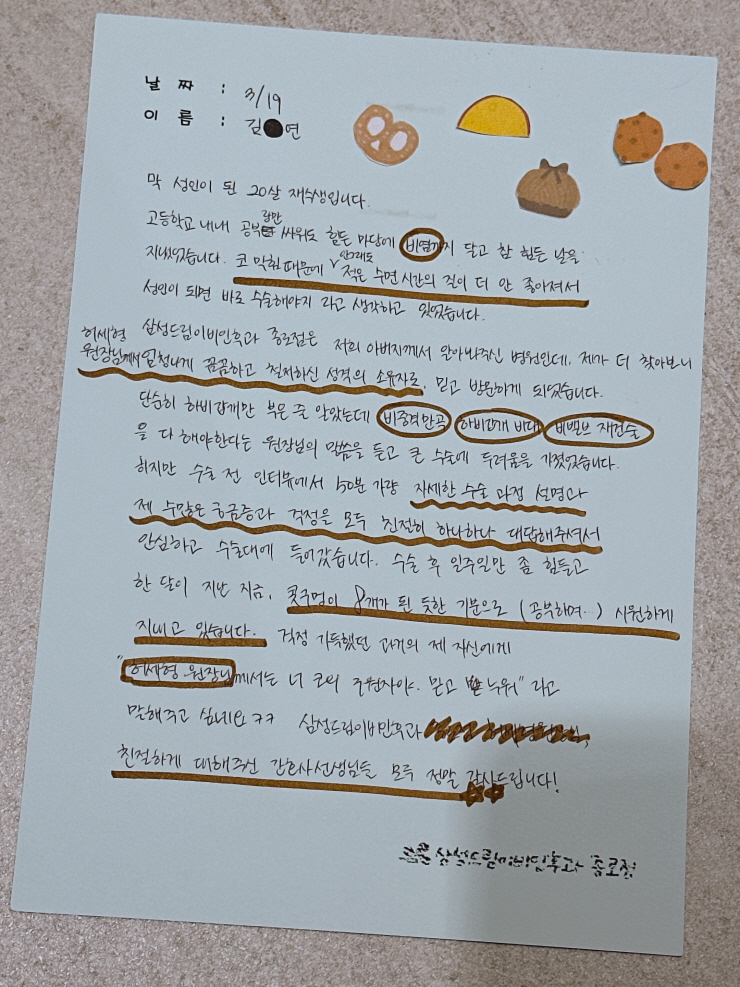 날 짜 : 3/19
이 름 : 김 연
막 성인이 된 20살 재수생입니다.
고등학교 내내 공부랑만 싸워도 힘든 마당에 비염까지 달고 참 힘든 날을
지내었습니다. 코 막힘 때문에 안그래도 적은 수면 시간의 질이 더 안 좋아져서
성인이 되면 바로 수술해야지 라고 생각하고 있었습니다.
삼성드림이비인후과 종로점은 저희 아버지께서 알아봐주신 병원인데, 제가 더 찾아보니
허세형 원장님께서 엄청나게 꼼꼼하고 철저하신 성격의 소유자로, 믿고 방문하게 되었습니다.
단순히 하비갑개만 부은 줄 알았는데 비중격만곡 하비갑개 비대 비밸브 재건술
을 다 해야한다는 원장님의 말씀을 듣고 큰 수술에 두려움을 가졌었습니다.
하지만 수술 전 인터뷰에서 50분 가량 자세한 수술 과정 설명과
제 수많은 궁금증과 걱정을 모두 친절히 하나하나 대답해주셔서
안심하고 수술대에 들어갔습니다. 수술 후 일주일만 좀 힘들고
한 달이 지난 지금, 콧구멍이 8개가 된 듯한 기분으로 (공부하며...) 시원하게
지내고 있습니다. 걱정 가득했던 과거의 제 자신에게
"허세형 원장님께서는 너 코의 구원자야. 믿고 누워" 라고
말해주고 싶네요 ㅋㅋ 삼성드림이비인후과
친절하게 대해주신 간호사선생님들 모두 정말 감사드립니다!
삼성드림이비인후과 종로점